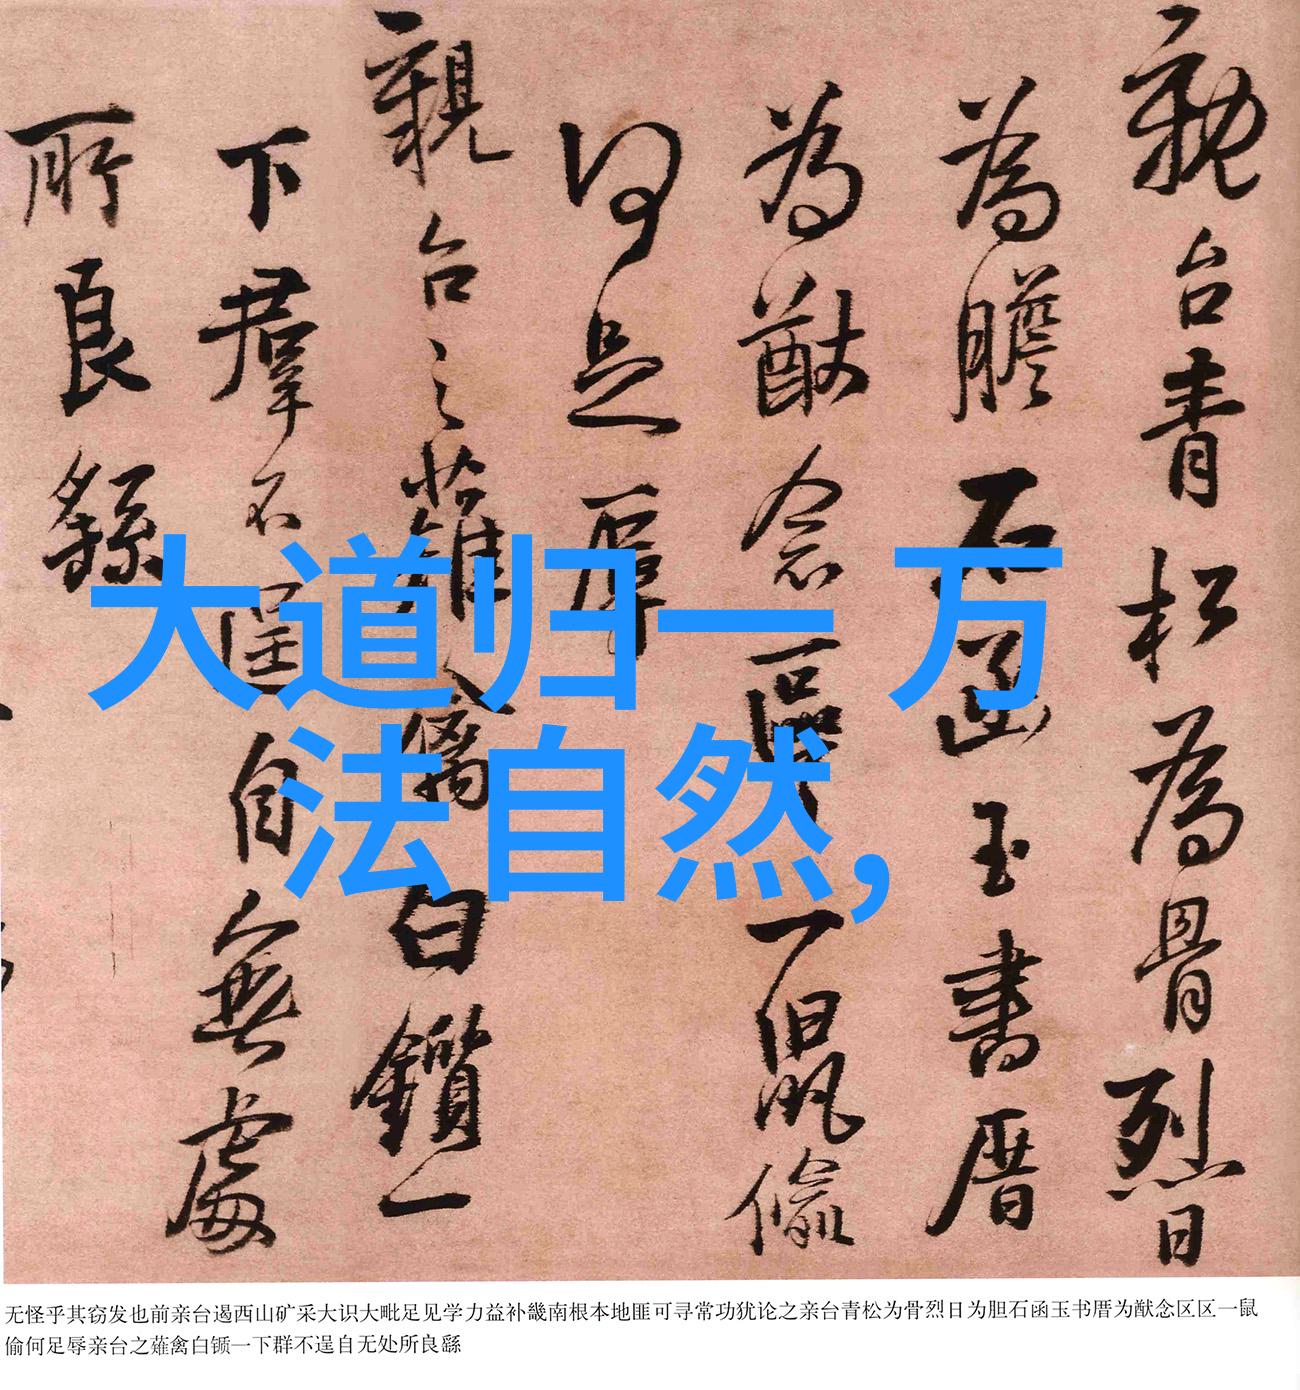 親台青松為骨烈日
為膽石函玉書厝
為猷念區區一鼠偷
何足辱
親台之薙禽白鑕一
下羣不逞自無處
所良繇
大道归一 万
法自然,
无怪乎其窃发也前亲台遏西山矿采大识大毗足见学力益补畿南根本地匪可寻常功犹论之亲台青松为骨烈日为胆石函玉书厝为猷念区区一鼠
偷何足辱亲台之薙禽白锧一下群不逞自无处所良繇